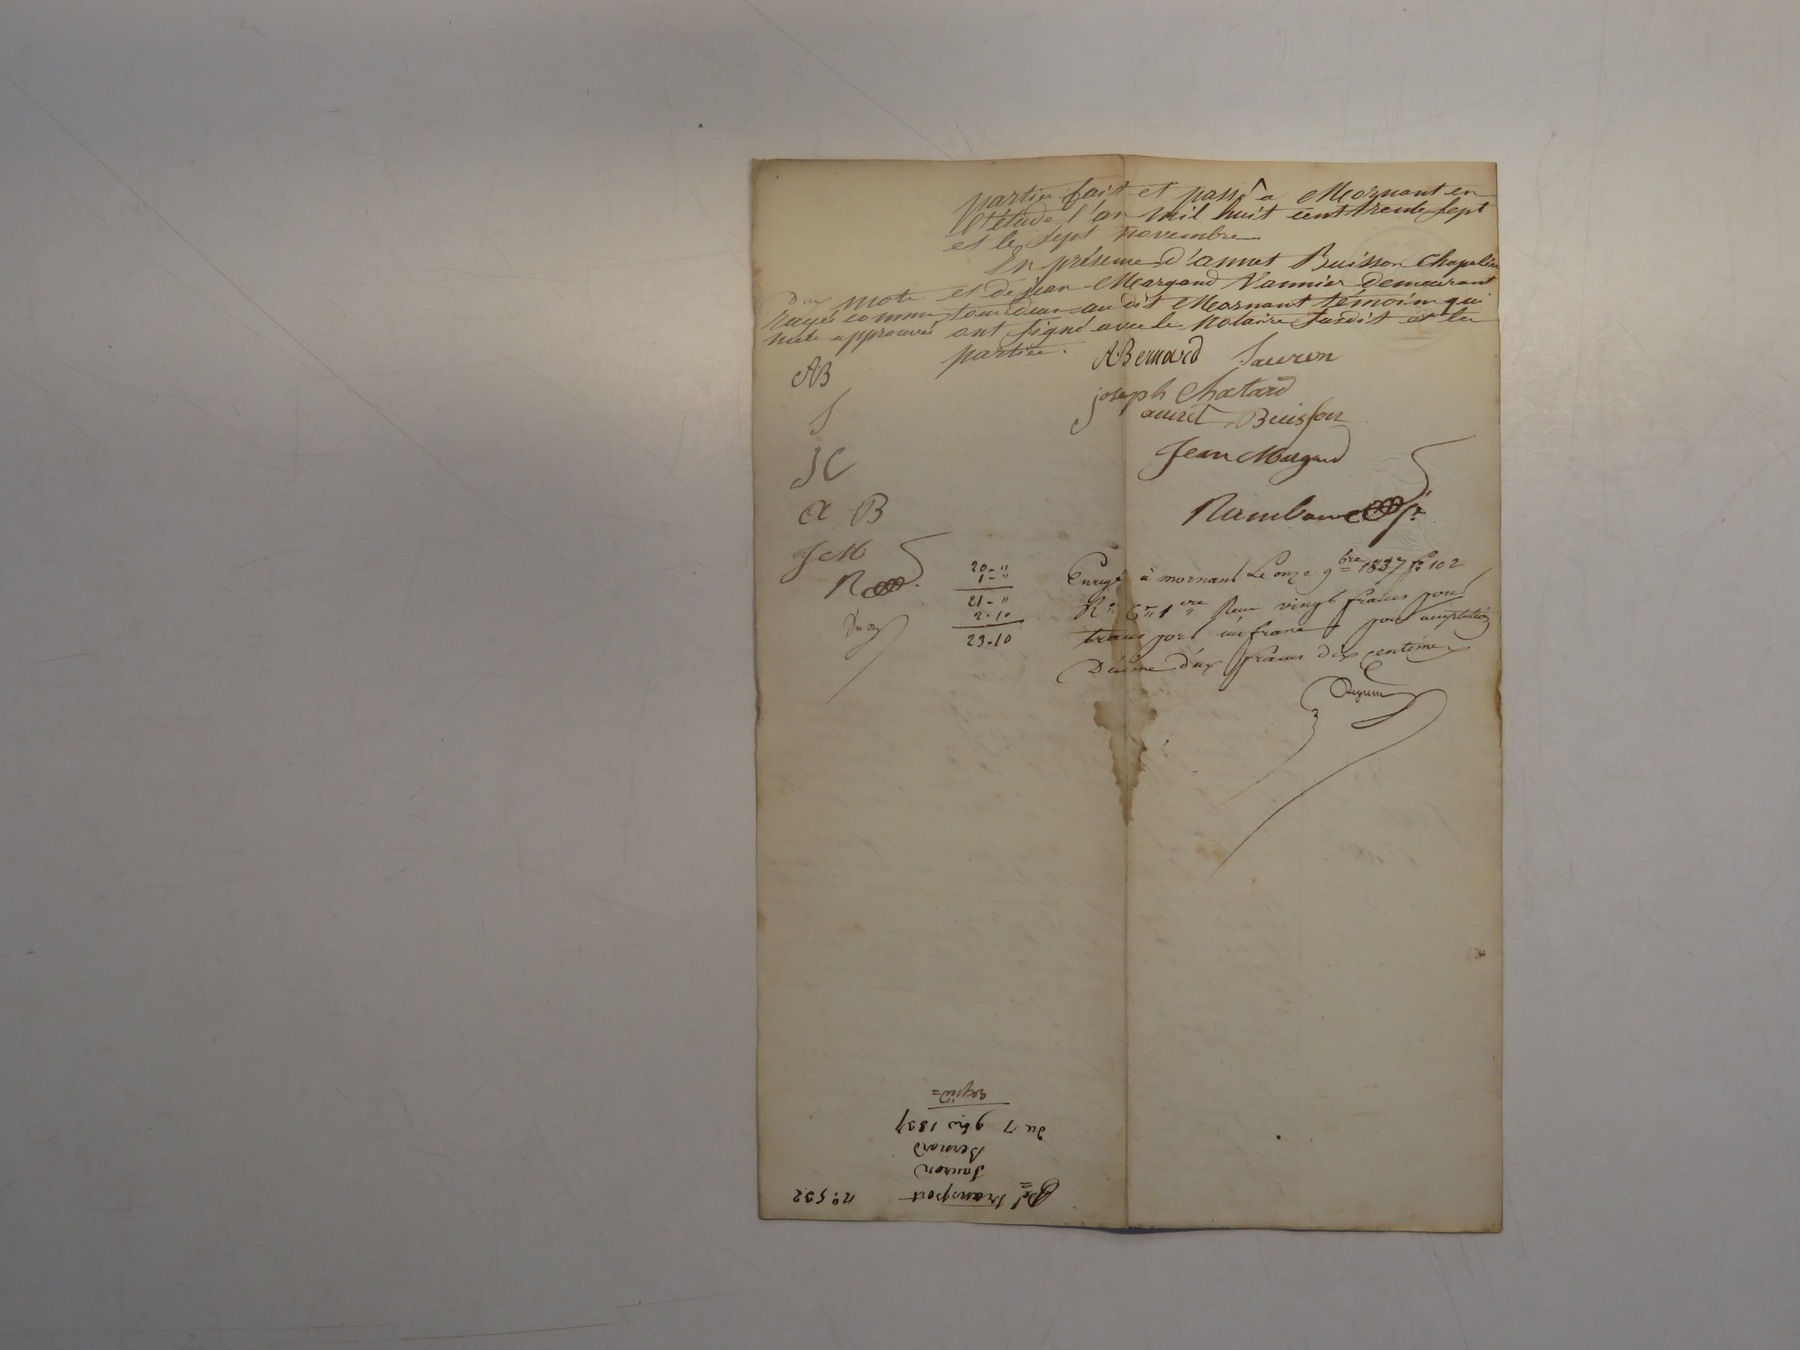 partie fait et passé a Mornant en
l'étude l'an mil huit cent trente sept
et le sept novembre
En présence d'annet Buisson Chapelier
et de jean Margand Vannier Demeurant
tous deux au dit Mornant témoins qui
ont signé avec le Notaire susdit et les
parties.
Deux mots
rayés comme
nuls approuvés
AB
S
JC
A B
JM
R
A Bernard Sauron
joseph Chatard
annet Buisson
Jean Margand
20 - "
1 - "
21 - "
2 - 10
23 - 10
Enregé à mornant Le onze 9bre 1837 fo 102
Ro Ces 1ere Reçu vingt francs pour
transport un franc pour acceptation
Décime deux francs dix centimes
nº 592
transport
Sauron
Bernard
du 7 9bre 1837
expédié